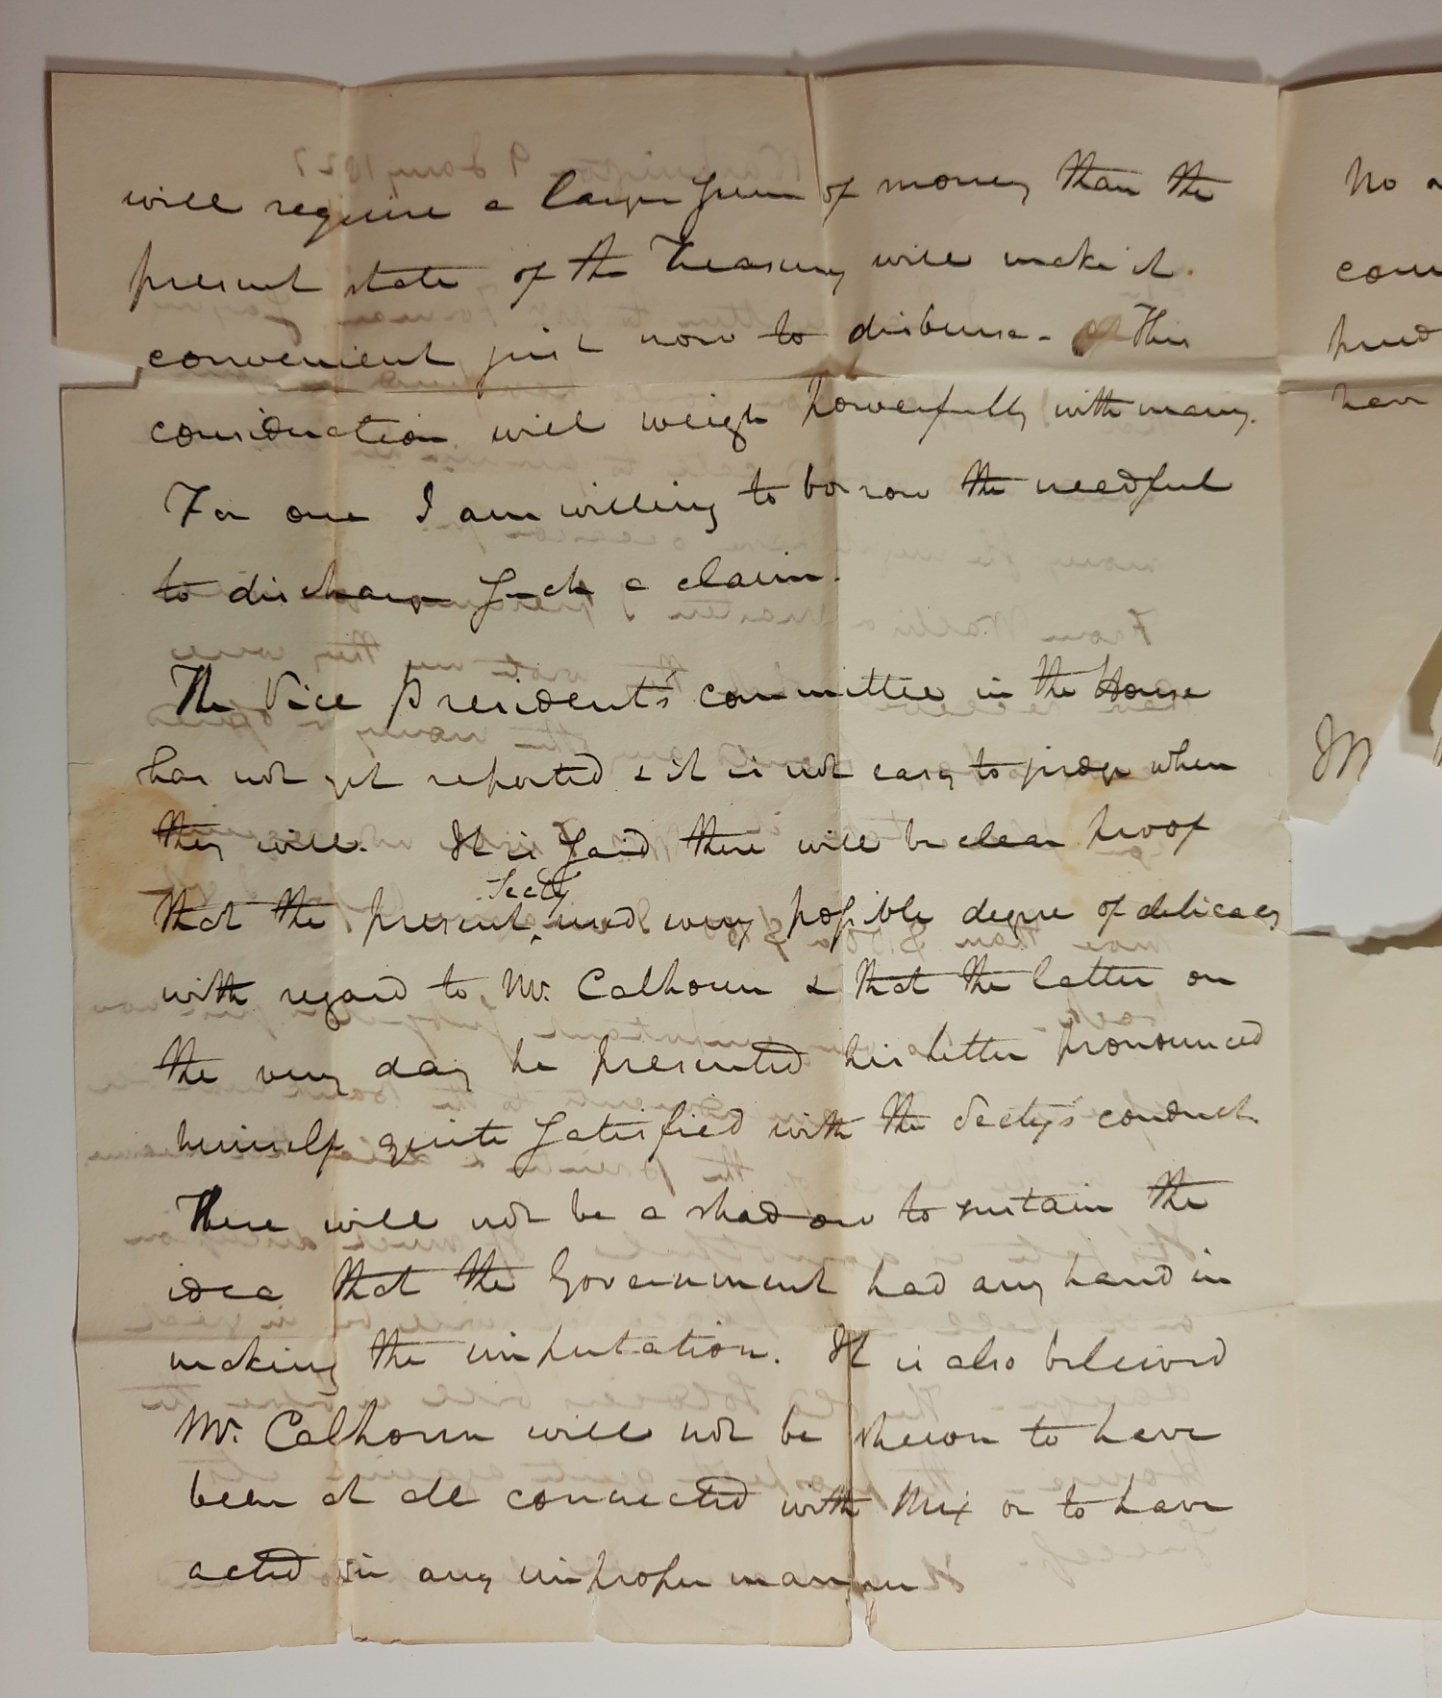 will require a larger sum of money than the
present state of the Treasury will make it
convenient just now to disburse - This
consideration will weigh powerfully with many.
For one I am willing to borrow the needful
to discharge such a claim.
The Vice President's committee in the House
has not yet reported & it is not easy to judge when
they will. It is said there will be clear proof
Secty
that the present used every possible degree of delicacy
with regard to Mr. Calhoun & that the latter on
the very day he presented his letter pronounced
himself quite satisfied with the Secty's conduct.
There will not be a shadow to sustain the
idea that the Government had any hand in
making the imputation. It is also believed
Mr. Calhoun will not be shewn to have
been at all connected with Mix or to have
acted in any improper manner
No
have